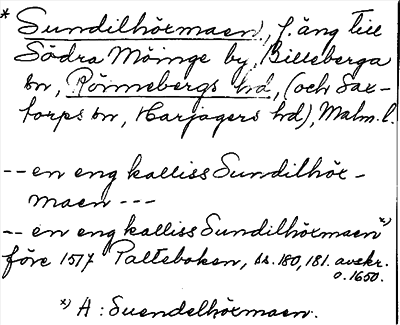 * Sundilhörmaen, f. äng till
Södra Möinge by, Billeberga
sn, Rönnebergs hd, (och Sax-
torps sn, Harjagers hd), Malm. l.
-- en eng kalliss Sundilhör-
maen ---
-- en eng kalliss Sundilhörmaen x)
före 1517 Palteboken, ss. 180, 181. avskr.
o. 1650.
x) A : Suendelhörmaen.